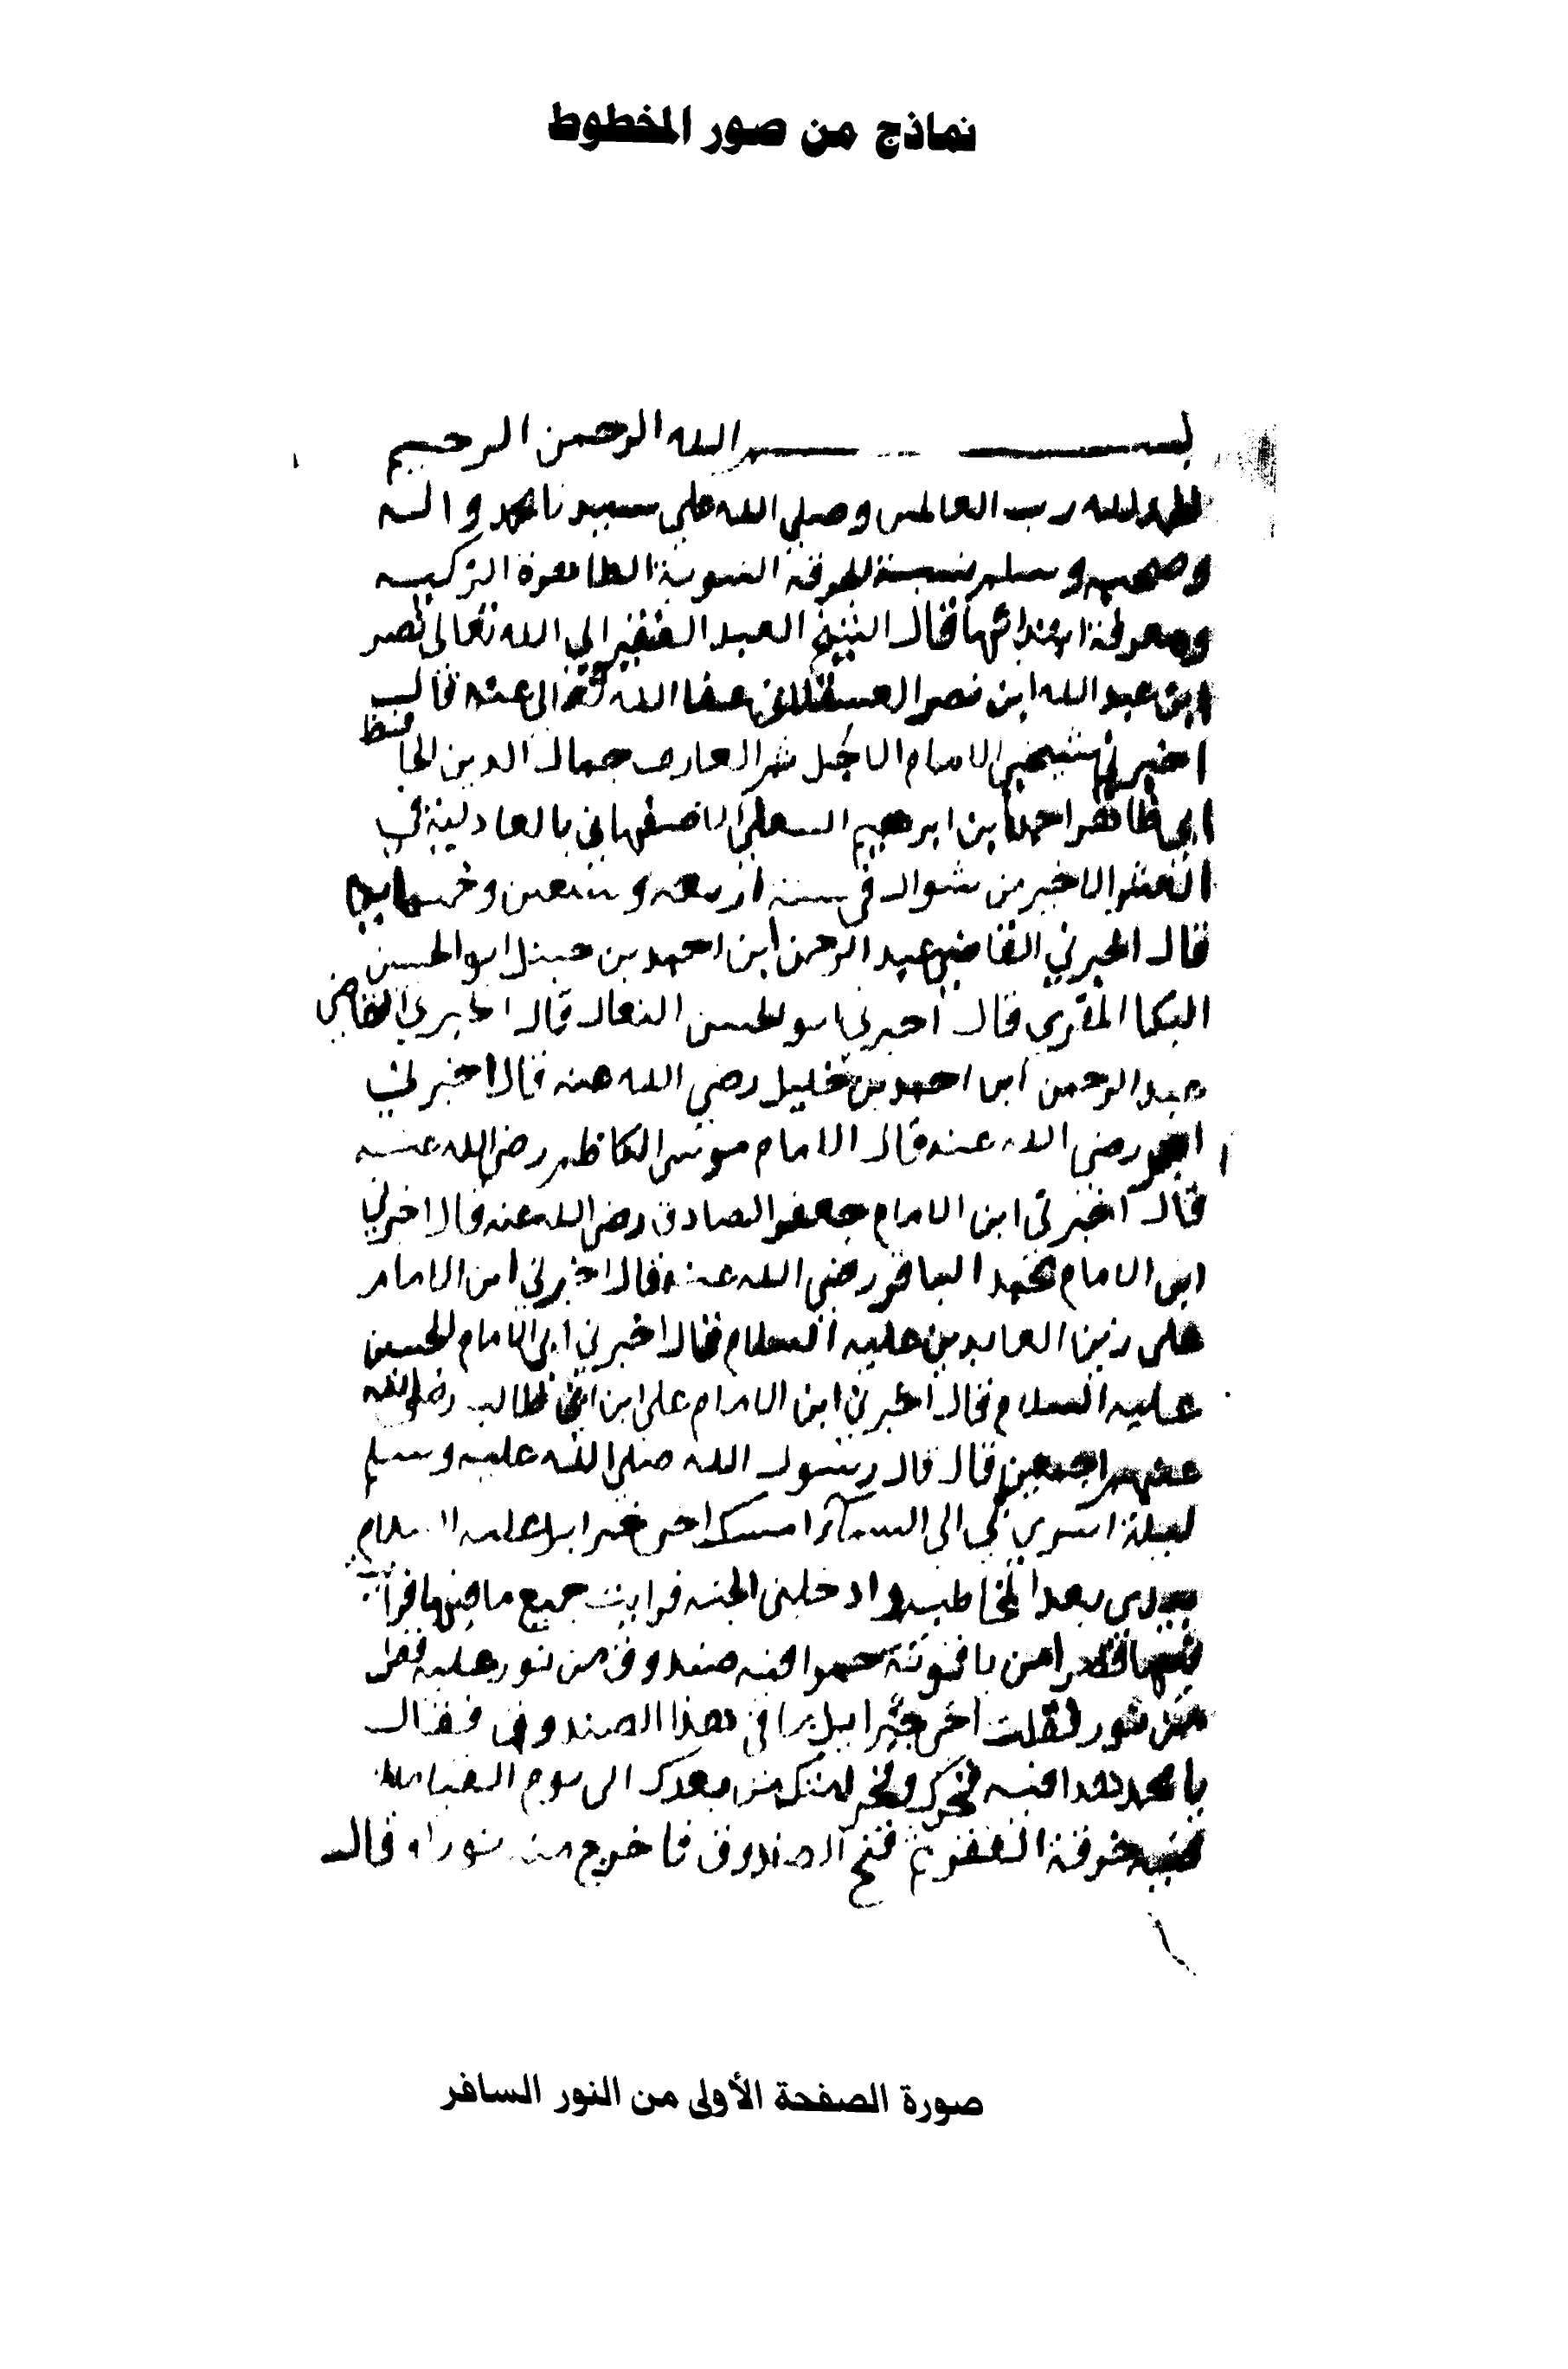 نماذج من صور المخطوط
بسم الله الرحمن الرحيم
الحمد لله رب العالمين وصلي الله علي سيدنا محمد واله
وصحبه وسلم نسبة الخرقة النبوية الطاهرة الزكيه
ومعرفة ابتدائها قال الشيخ العبد الفقير الي الله تعالى نصر
ابن عبد الله ابن نصر العسقلاني عفا الله تعالى عنه قال
اخبرني شيخي الامام الاجل شمر العارف جمال الدين الحافظ
ابي طاهر احمد ابن ابرهيم السلفي الاصفهاني بالعادلية في
العشر الاخير من شوال في سنة اربعه و وخمسمايه
قال اخبرني القاضي عبد الرحمن ابن احمد بن حنبل ابو الحسين
المقري قال اخبرني ابو الحسن النعال قال اخبرني القاضي
عبد الرحمن ابن احمد بن خليل رضي الله عنه قال اخبرني
رضي الله عنه قال الامام موسى الكاظم رضي الله عنه
قال اخبرني ابن الامام جعفر الصادق رضي الله عنه قال اخبرني
ابي الامام محمد الباقر رضي الله عنه قال اخبرني ابن الامام
على زين العابدين عليه السلام قال اخبرني ابي الامام الحسين
عليه السلام قال اخبرني ابن الامام على ابن ابي طالب رضي الله
عنهم اجمعين قال قال رسول الله صلى الله عليه وسلم
ليلة اسري بي الى السماء امسك اخي جبرايل عليه السلام
بيدي بعد وادخلني الجنه فرايت جميع ما فيها فرايت
فيها قصرا من ياقوتة حمرا فيه صندوق من نور عليه قفل
من نور فقلت اخي جبرايل ما في هذا الصندوق فقال
يا محمد هذا فيه فخرك وفخر امتك من بعدك الى يوم القيامة
فيه خرقة الفقر ثم فتح الصندوق فاخرج منه نورا قال
صورة الصفحة الأولى من النور السافر